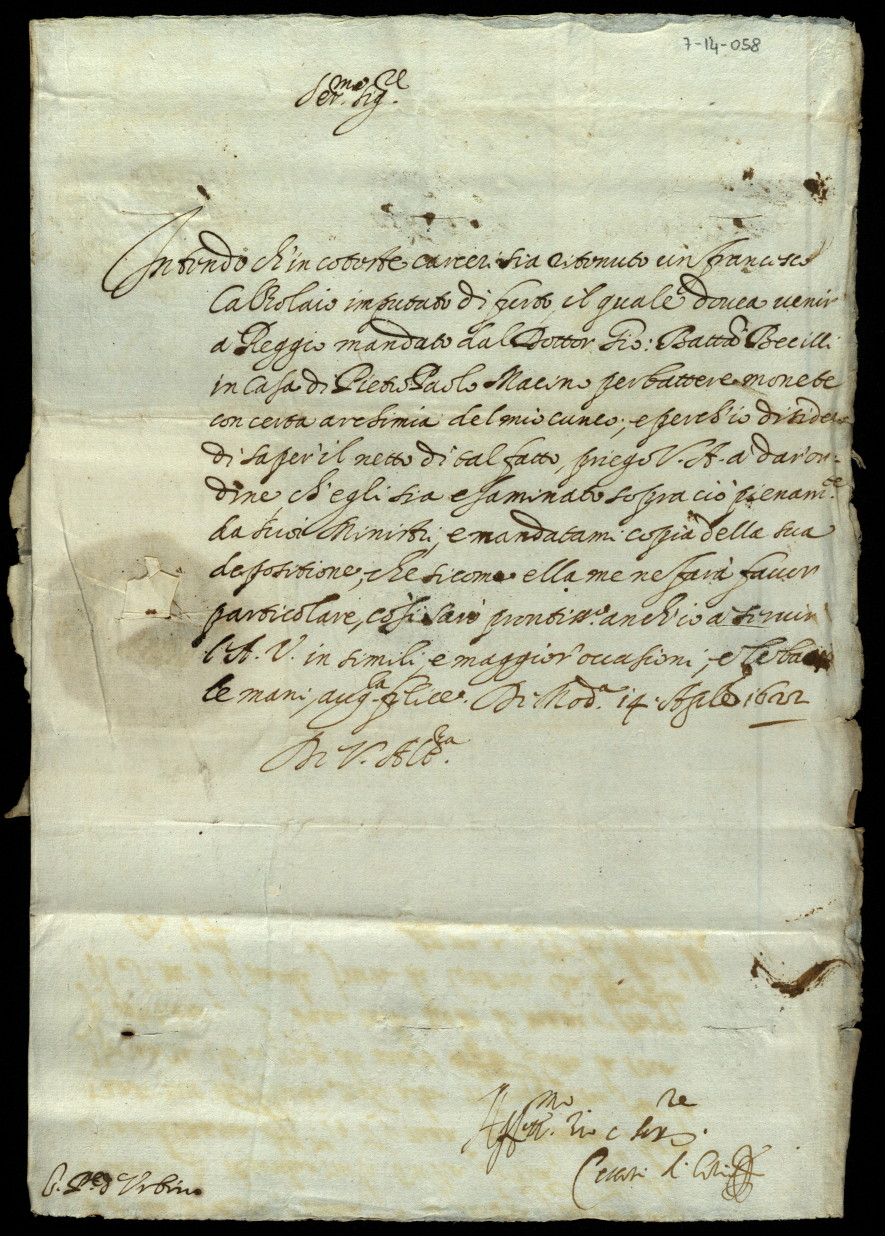 7-14-058
Ser.mo Sig.re
Intendo ch'in coteste carceri sia ritenuto un francesco
Calzolaio imputato di furto, il quale dovea venir
a Reggio mandato dal Dottor Gio: Batta Becilli
in Casa di Pietro Paolo Macino per battere monete
con certa arcimia del mio cuneo; e perch'io disidero
di saper il netto di tal fatto, priego V. A. a dar or-
dine ch'egli sia essaminato sopra ciò pienam.te
da suoi Ministri, e mandatami copia della sua
depositione, che sicome ella me ne farà favor
particolare, così sarò prontiss.o anch'io a servir
l'A. V. in simili, e maggior occasioni, e le bacio
le mani, aug.le felice. Di Mod.a 14 Aprile 1622
Di V. Alt.za
Aff.mo Zio e ser.re
Cesare d'Este
S. Pe d'Urbino